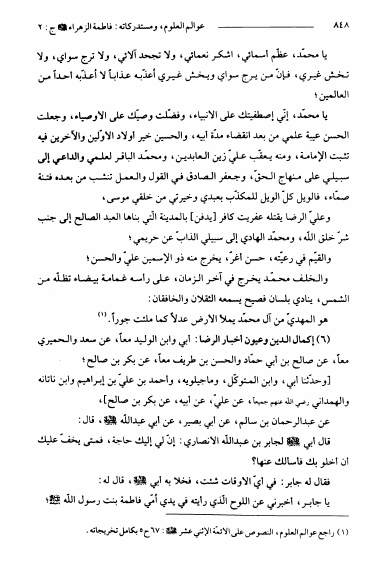 ٨٤٨ عوالم العلوم، ومستدركاته : فاطمة الزهراء ﷺ ج : ٢
يا محمّد، عظّم أسمائي، اشكر نعمائي، ولا تجحد آلائي، ولا ترج سواي، ولا
تخش غيري، فإنّ من يرج سواي ويخش غيري أعذّبه عذاباً لا أعذّبه أحداً من
العالمين؛
يا محمّد، إنّي إصطفيتك على الأنبياء، وفضّلت وصيّك على الأوصياء، وجعلت
الحسن عيبة علمي من بعد انقضاء مدّة أبيه، والحسين خير أولاد الأوّلين والآخرين فيه
تثبت الإمامة، ومنه يعقّب عليّ زين العابدين، ومحمّد الباقر لعلمي والداعي إلى
سبيلي على منهاج الحقّ، وجعفر الصادق في القول والعمل تنشب من بعده فتنة
صمّاء، فالويل كلّ الويل للمكذّب بعبدي وخيرتي من خلقي موسى،
وعليّ الرضا يقتله عفريت كافر [يدفن] بالمدينة الّتي بناها العبد الصالح إلى جنب
شرّ خلق اللّه، ومحمّد الهادي إلى سبيلي الذابّ عن حريمي؛
والقيّم في رعيّته، حسن أغرّ، يخرج منه ذو الإسمين عليّ والحسن؛
والخلف محمّد يخرج في آخر الزمان، على رأسه غمامة بيضاء تظلّه من
الشمس، ينادي بلسان فصيح يسمعه الثقلان والخافقان:
هو المهديّ من آل محمّد يملأ الأرض عدلاً كما ملئت جوراً.(١)
(٦) إكمال الدين وعيون أخبار الرضا: أبي وابن الوليد معاً، عن سعد والحميري
معاً، عن صالح بن أبي حمّاد والحسن بن طريف معاً، عن بكر بن صالح؛
[وحدّثنا أبي، وابن المتوكّل، وماجيلويه، وأحمد بن عليّ بن إبراهيم وابن ناتانه
والهمداني رضي الله عنهم جميعاً، عن عليّ، عن أبيه، عن بكر بن صالح]،
عن عبدالرحمان بن سالم، عن أبي بصير، عن أبي عبداللّه ﷺ، قال:
قال أبي ﷺ لجابر بن عبداللّه الأنصاري: إنّ لي إليك حاجة، فمتى يخفّ عليك
أن أخلو بك فأسألك عنها؟
فقال له جابر: في أيّ الأوقات شئت، فخلا به أبي ﷺ، قال له:
يا جابر، أخبرني عن اللوح الّذي رأيته في يدي أُمّي فاطمة بنت رسول اللّه ﷺ؛
(١) راجع عوالم العلوم، النصوص على الائمّة الإثني عشر ﷺ: ٦٧ ح ٥ بكامل تخريجاته.